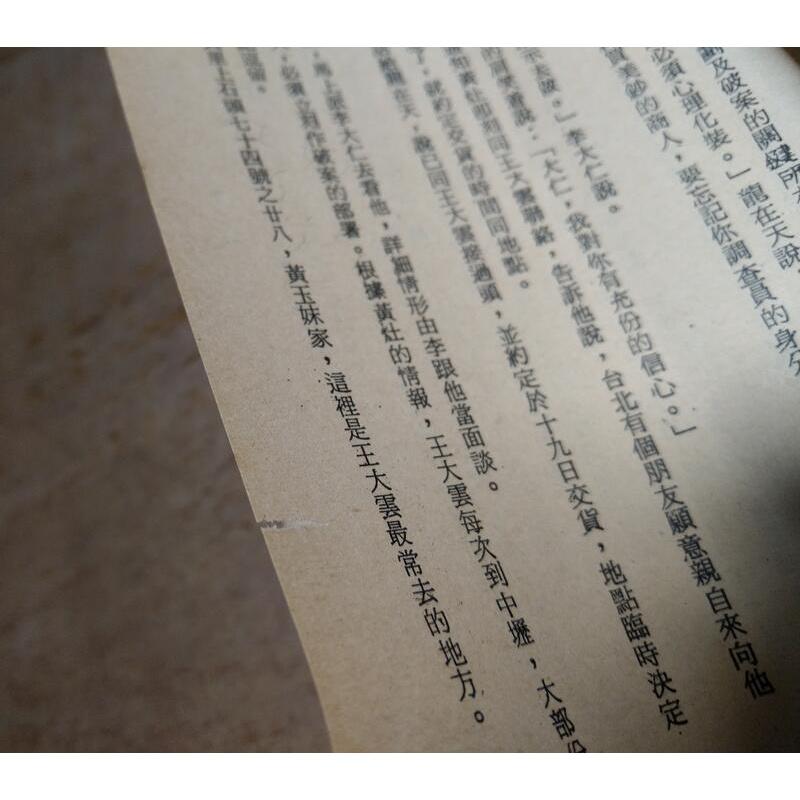 及破案的關鍵所在
必須心理化裝。」龍在天說
買美鈔的商人，要忘記你調查員的身分
」李大仁說。
說：「大仁，我對你有充份的信心。」
即刻同王大雲聯絡，告訴他說，台北有個朋友願意親自來向他
，就約定交貨的時間同地點。
在天，說已同王大雲接過頭，並約定於十九日交貨，地點臨時決定
，馬上跟李大仁去看他，詳細情形由李跟他當面談。
，必須立刻作破案的部署。根據黃灶的情報，王大雲每次到中壢，大部份
上石頭七十四號之廿八，黃玉妹家，這裡是王大雲最常去的地方。